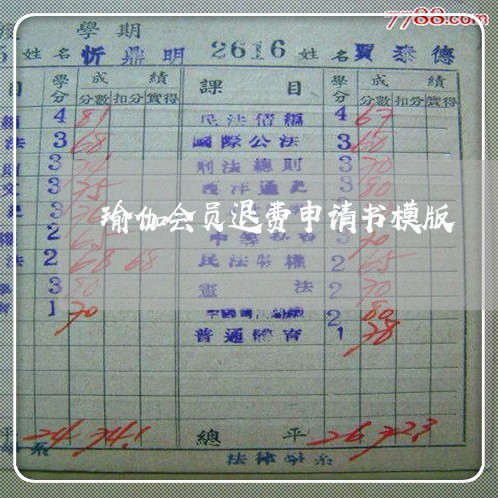 7788.com
學期
姓名 忻鼎明 2616 姓名 賈泰德
目 學分 成績 課目 學分 成績
分數 扣分 實得 分數 扣分 實得
4 81 民法債編 4 67
法 3 68 國際公法 3 60
則 3 刑法總則 3 70
3 75 西洋通史 3 80
3
瑜伽会员退费申请书模版
2 65 3 70
法 2 68 68 民法物權 2 65
3 80 憲法 2 70
1 70 2 80
普通體育 1 78
平 24 74.1 總平 26 72.3
系 法律學系